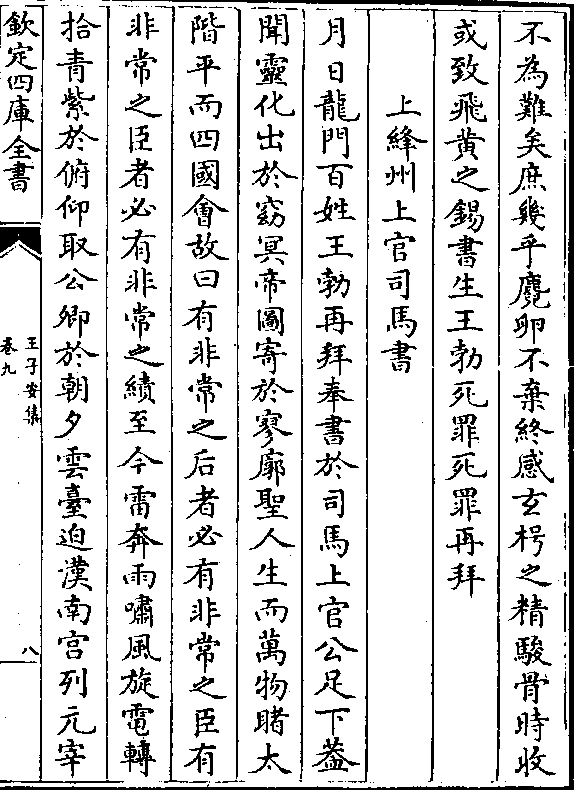 不為難矣庶幾乎麑卵不棄終感玄枵之精駿骨時收
或致飛黃之錫書生王勃死罪死罪再拜
上絳州上官司馬書
月日龍門百姓王勃再拜奉書於司馬上官公足下蓋
聞靈化出於窈冥帝圖寄於寥廓聖人生而萬物睹太
階平而四國會故曰有非常之后者必有非常之臣有
非常之臣者必有非常之績至今雷奔雨嘯風旋電轉
拾青紫於俯仰取公卿於朝夕雲臺迫漢南宮列元宰
欽定四庫全書
王子安集
卷九
八